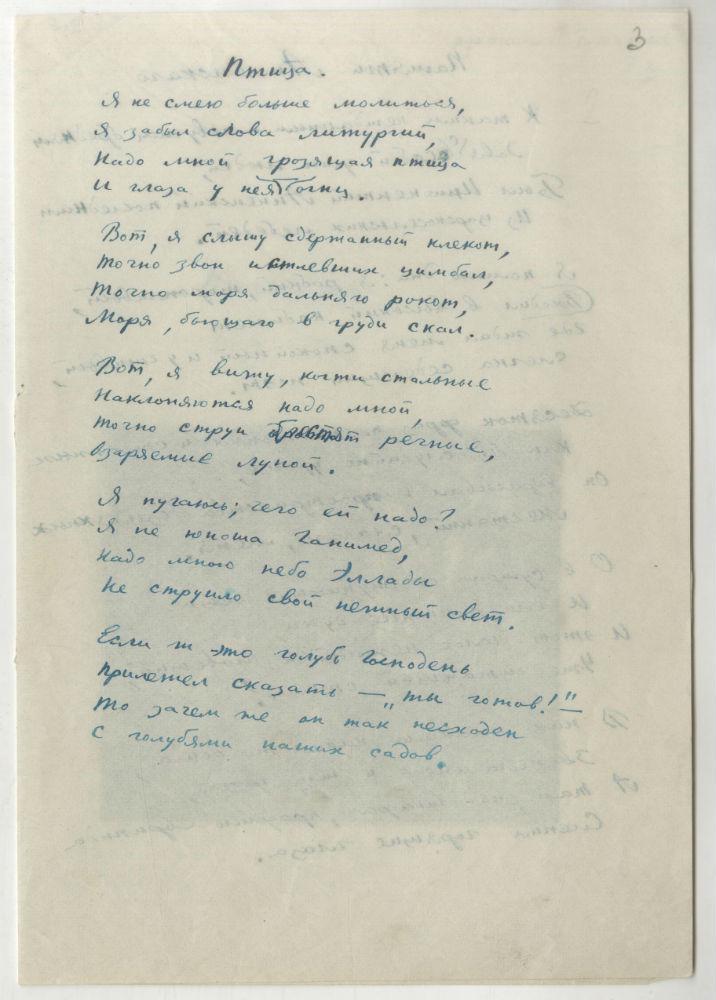 3
Птица.
Я не смею больше молиться,
Я забыл слова литургий,
Надо мной грозящая птица
И глаза у ней огни.
Вот, я слышу сдержанный клекот,
Точно звон истлевших цимбал,
Точно моря дальняго рокот,
Моря, бьющаго в груди скал.
Вот, я вижу, когти стальные
Наклоняются надо мной,
Точно струи дрожат речные,
Озаряемые луной.
Я пугаюсь; чего ей надо?
Я не юноша Ганимед,
Надо мною небо Эллады
Не струило свой нежный свет.
Если ж это голубь Господень
Прилетел сказать — „ты готов!" —
То зачем же он так несходен
С голубями наших садов.